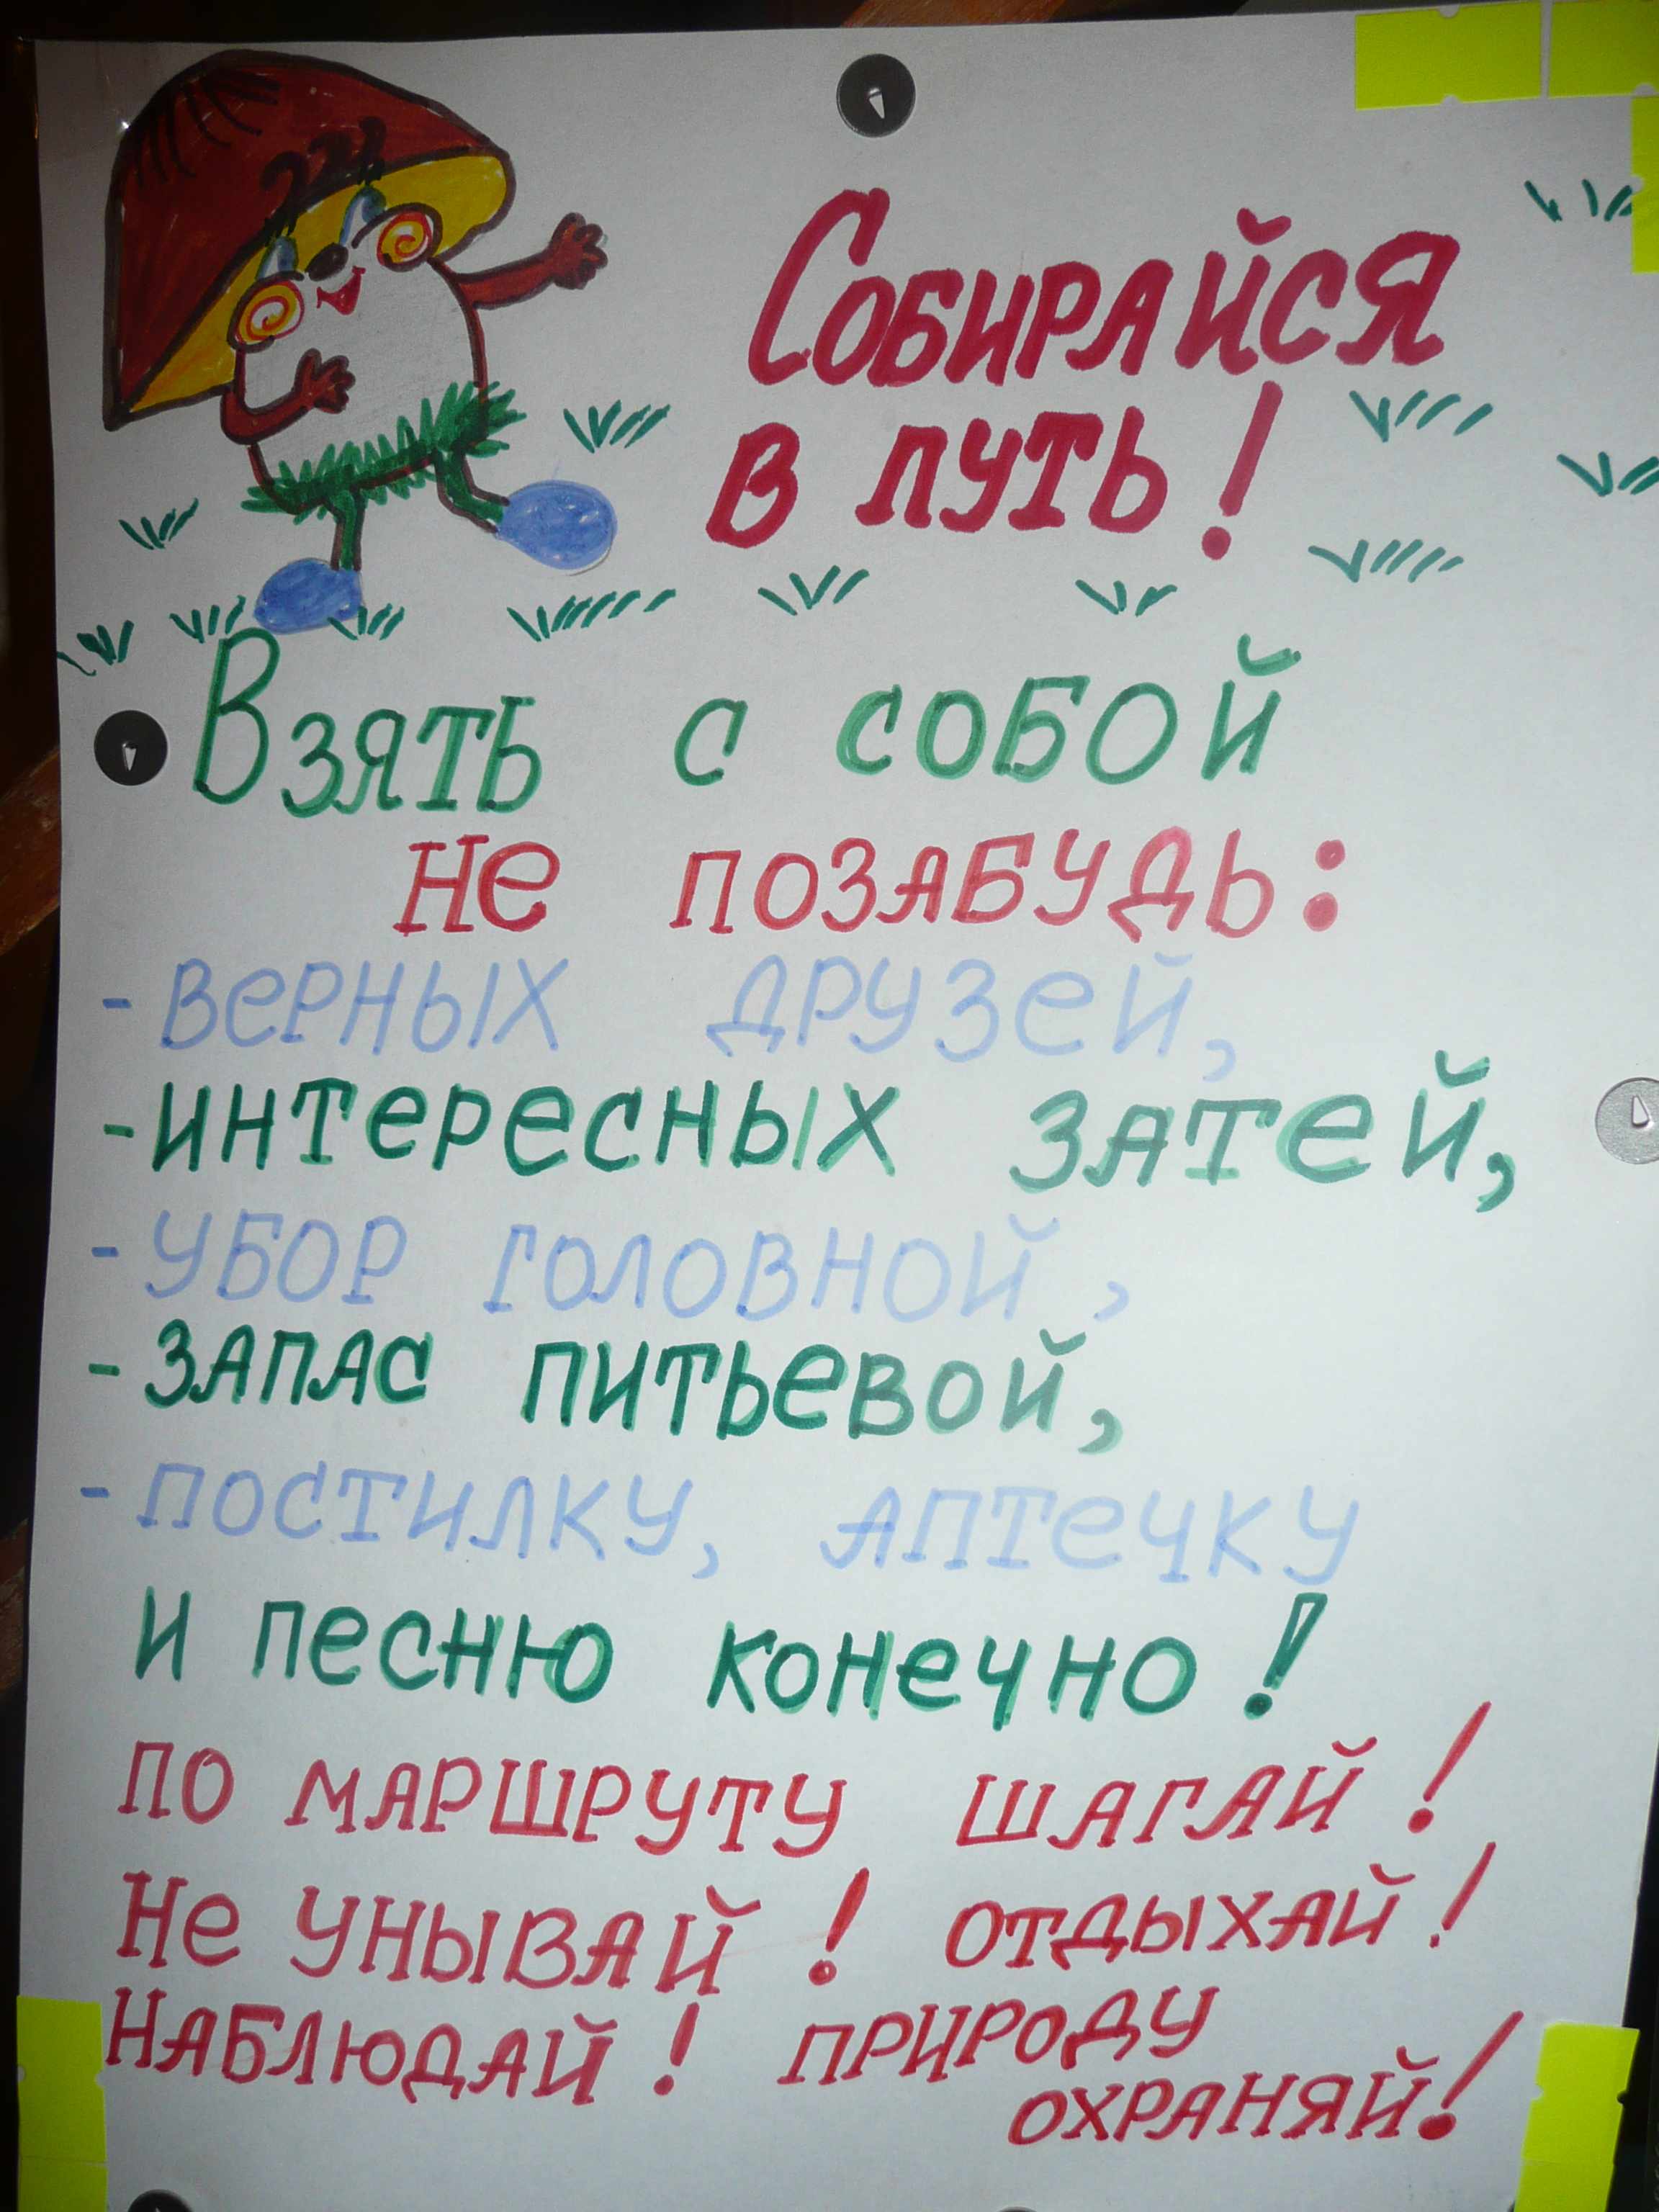 Собирайся
в путь!
Взять с собой
не позабудь:
- верных друзей,
- интересных затей,
- убор головной,
- запас питьевой,
- постилку, аптечку
и песню конечно!
по маршруту шагай!
Не унывай! отдыхай!
Наблюдай! природу
охраняй!